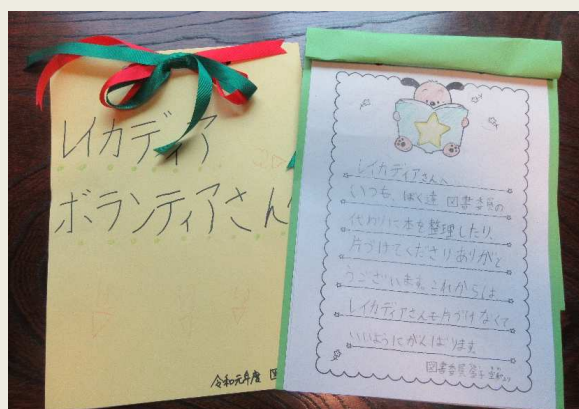 レイカディア
ボランティアさん
令和元年度
レイカディアさんへ
いつも、ぼく達 図書委員の
代わりに本を整理したり、
片づけてくださりありがと
うございます。これからは
レイカディアさんも片づけなくて
いいようにがんばります。
図書委員
より